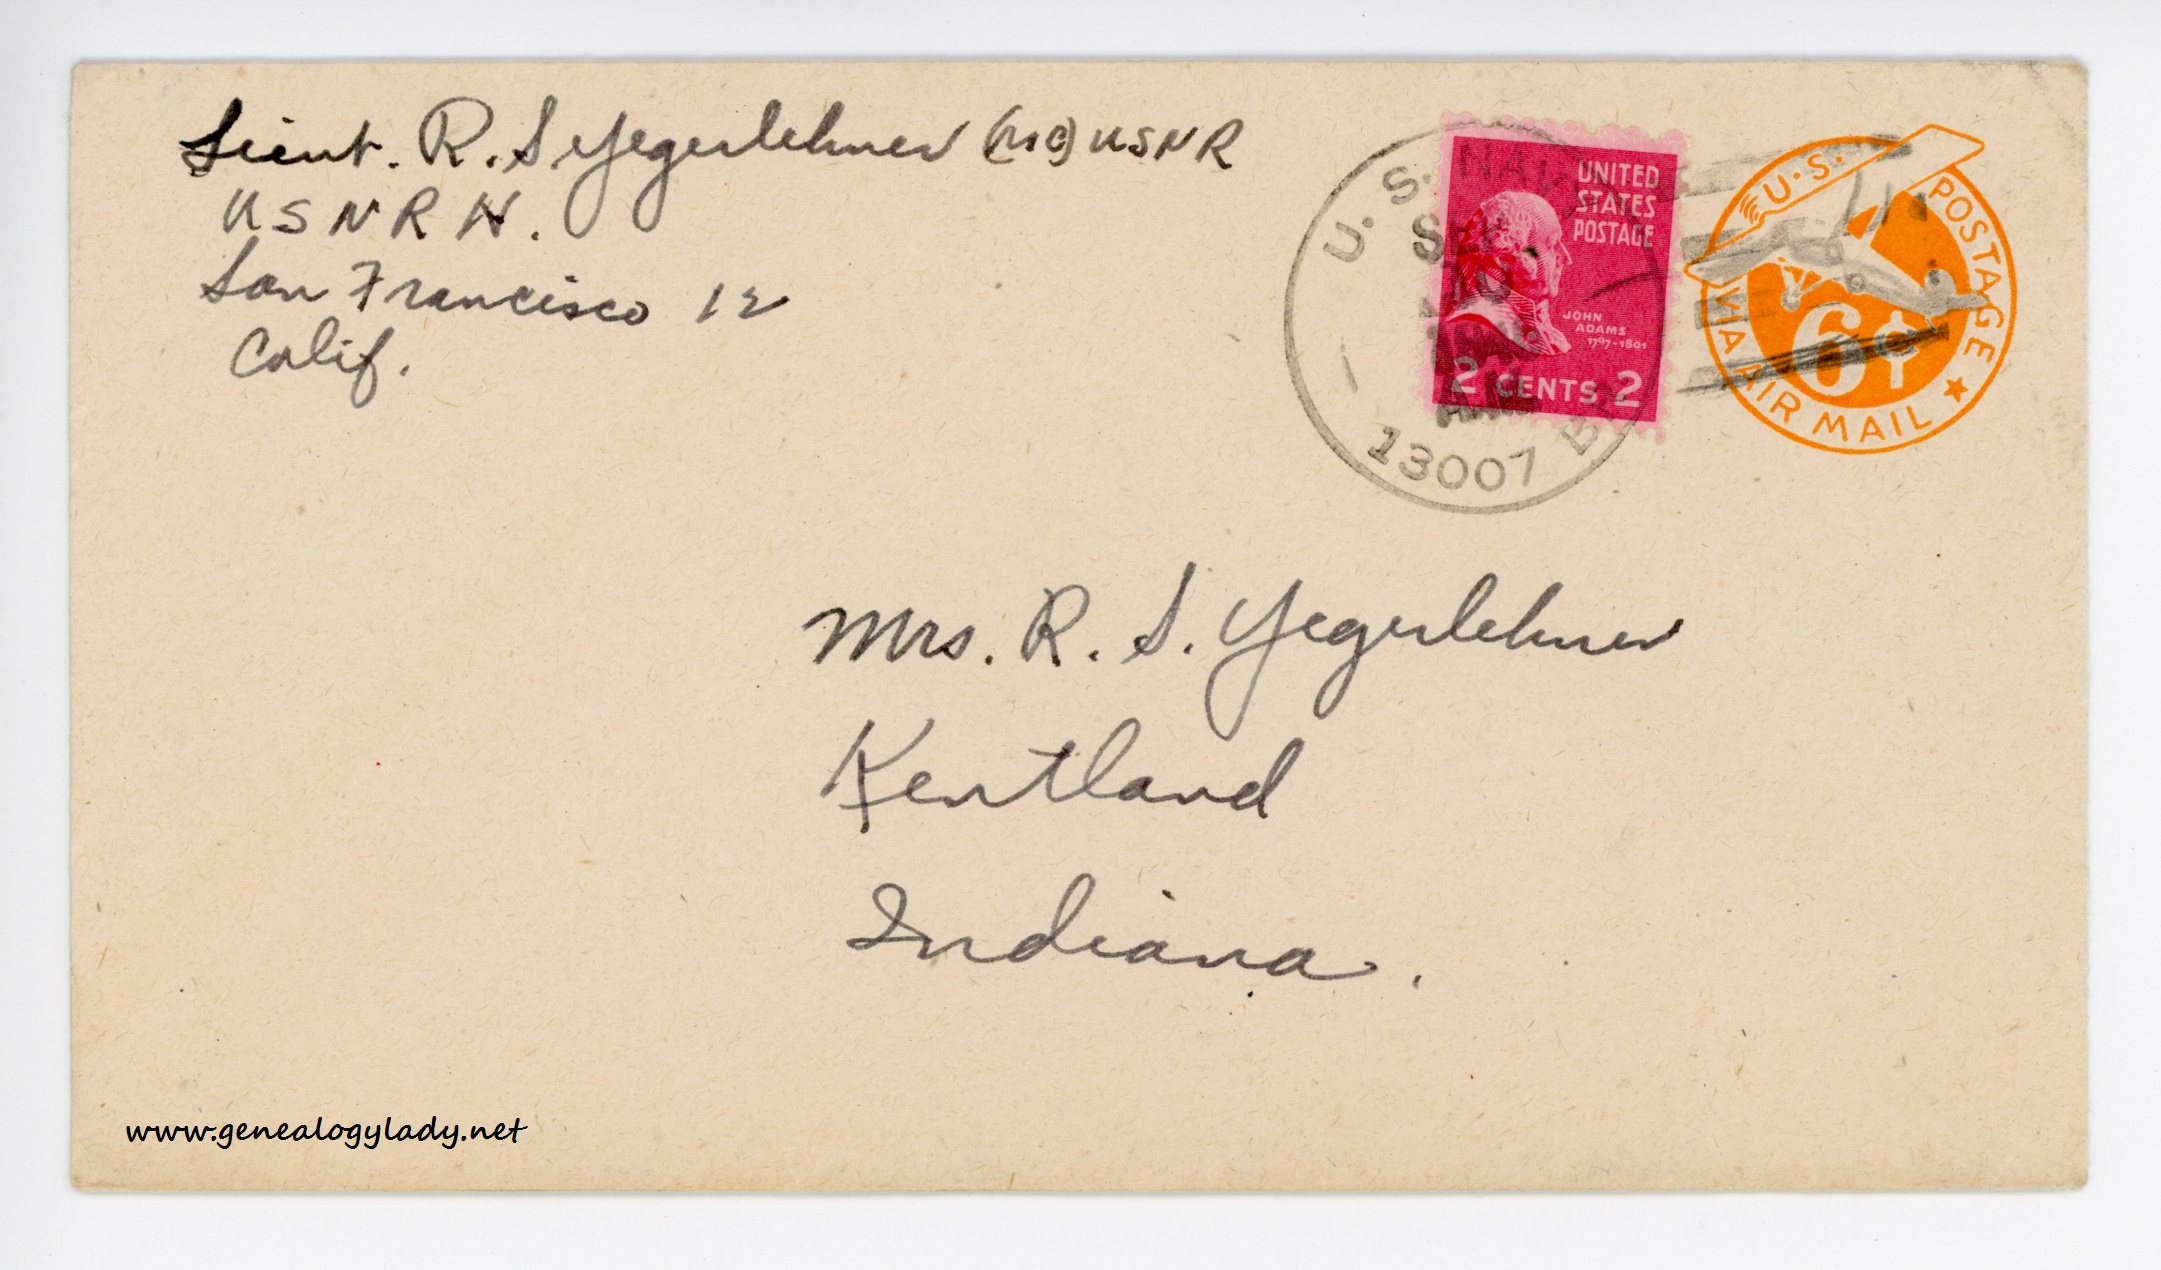 Lieut. R. S. Yegerlehner (MC) USNR
USNRH.
San Francisco 12
Calif.
U.S. NAVY
SEP
10
13007 BR
UNITED
STATES
POSTAGE
JOHN
ADAMS
1797-1801
2 CENTS 2
U.S. POSTAGE
VIA AIR MAIL
6¢
Mrs. R. S. Yegerlehner
Kentland
Indiana.
www.genealogylady.net